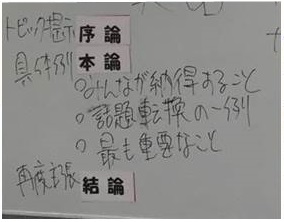 トピック提示 序論
具体例 本論
○みんなが納得すること
○話題転換の一例
○最も重要なこと
再度主張 結論